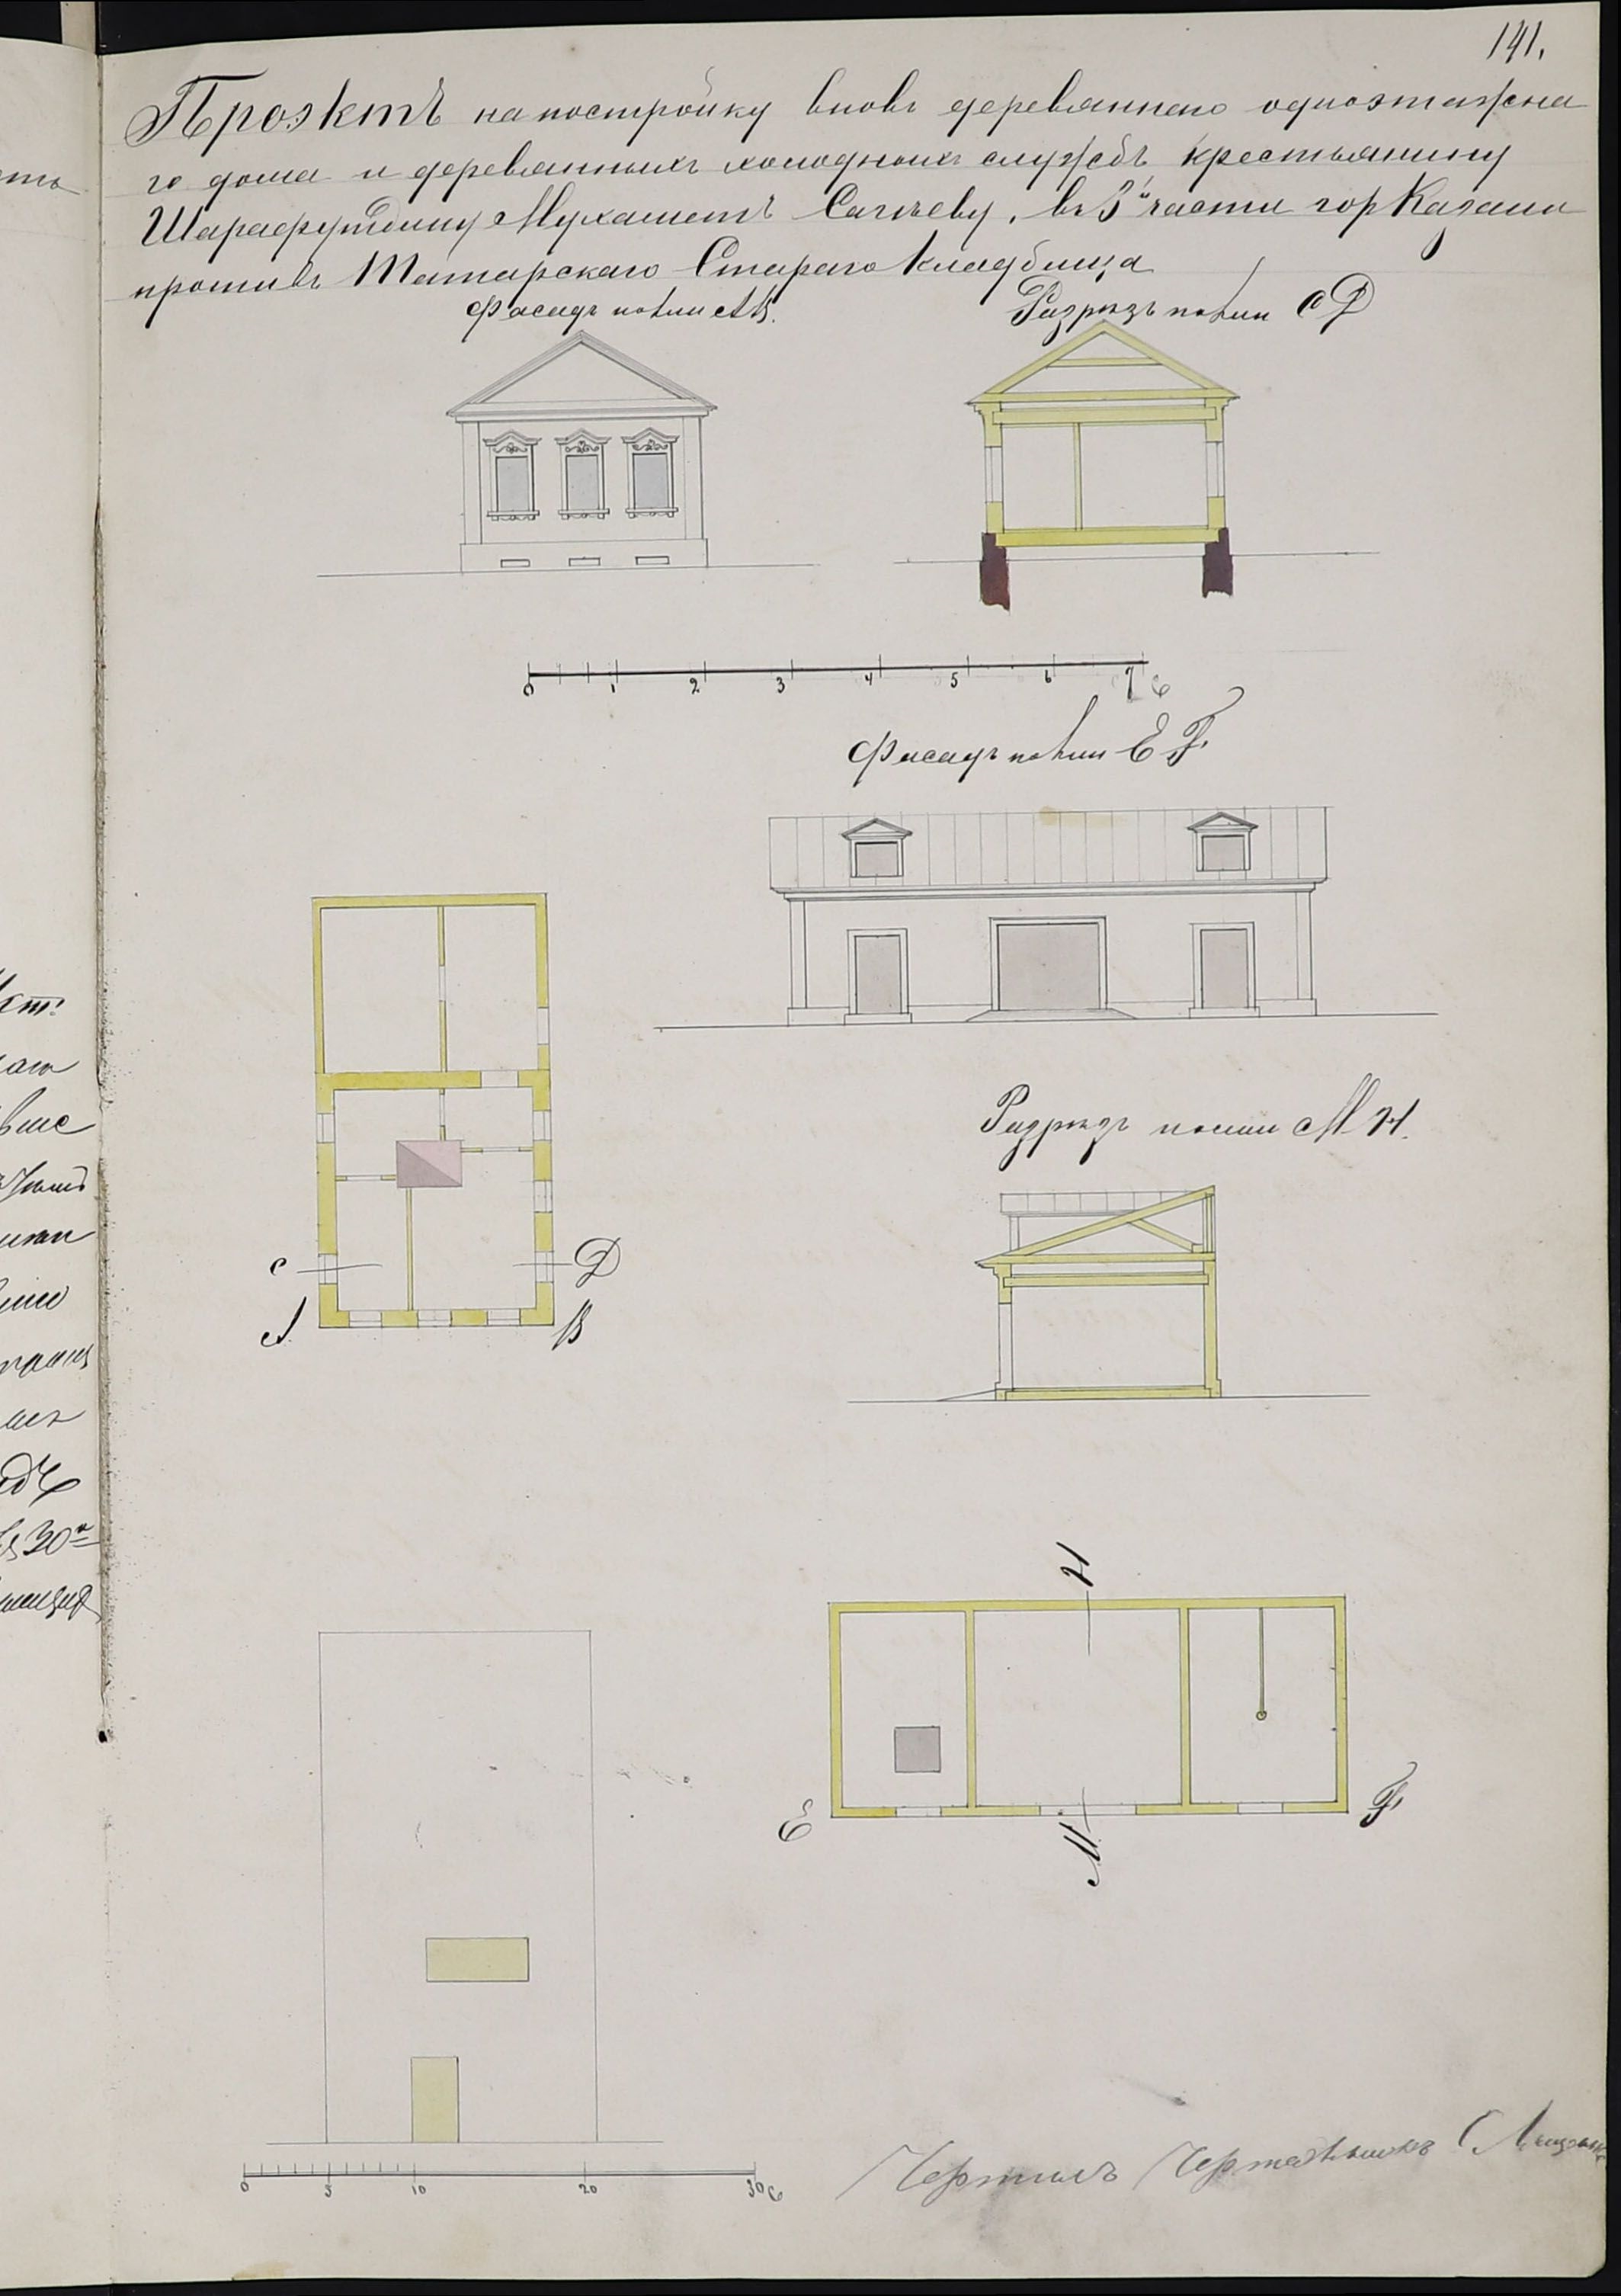 141.
Проэктъ на постройку вновь деревяннаго одноэтажна
го дома и деревянныхъ холодныхъ службъ крестьянину
Шарафутдину Мухаметъ Сагѣеву, въ 3й части гор Казани
противъ Татарскаго Стараго Кладбища
Фасадъ по лин АВ.
Разрѣзъ по лин СД
0 1 2 3 4 5 6 7 с
Фасадъ по лин Е F.
Разрѣзъ по лин М Н.
С Д
А В
Н
Е F.
М
0 5 10 20 30 с
Чертилъ Чертежникъ
кт.
30